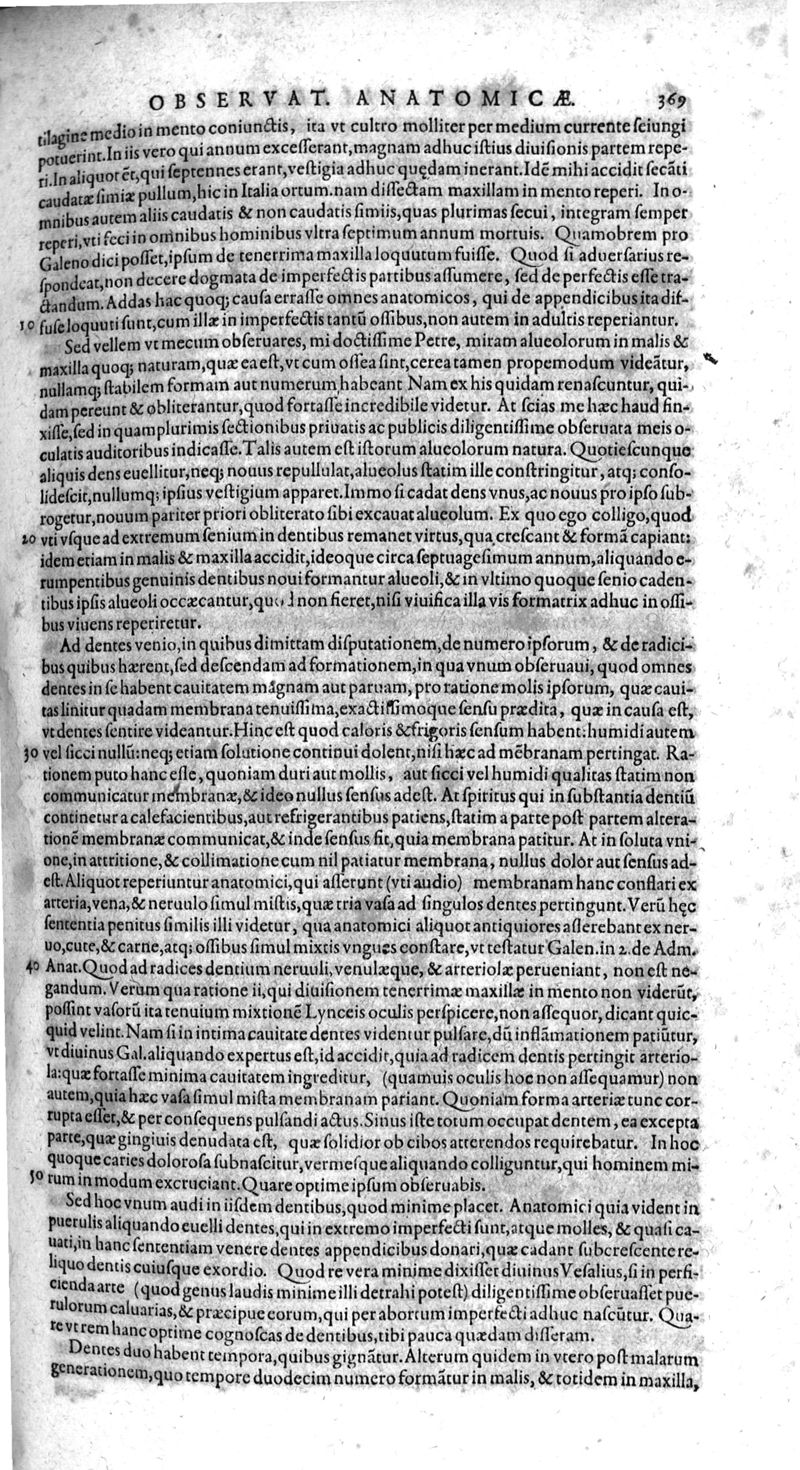 OBSERVAT. ANATOMICÆ. 369
tilagine medio in mento coniunctis, ita vt cultro molliter per medium currente ſeiungi
potuerint. In iis vero qui annum exceſſerant, magnam adhuc iſtius diuiſionis partem repe-
ri. In aliquot ēt, qui ſeptennes erant, veſtigia adhuc quędam inerant. Idē mihi accidit ſecāti
caudatæ ſimiæ pullum, hic in Italia ortum. nam diſſectam maxillam in mento reperi. In o-
mnibus autem aliis caudatis & non caudatis ſimiis, quas plurimas ſecui, integram ſemper
reperi, vti feci in omnibus hominibus vltra ſeptimum annum mortuis. Quamobrem pro
Galeno dici poſſet, ipſum de tenerrima maxilla loquutum fuiſſe. Quod ſi aduerſarius re-
ſpondeat, non decere dogmata de imperfectis partibus aſſumere, ſed de perfectis eſſe tra-
ctandum. Addas hac quoq; cauſa erraſſe omnes anatomicos, qui de appendicibus ita dif-
10 fuſe loquuti ſunt, cum illæ in imperfectis tantū oſſibus, non autem in adultis reperiantur.
Sed vellem vt mecum obſeruares, mi doctiſſime Petre, miram alueolorum in malis &
maxilla quoq; naturam, quæ ea eſt, vt cum oſſea ſint, cerea tamen propemodum videātur,
nullamq; ſtabilem formam aut numerum habeant Nam ex his quidam renaſcuntur, qui-
dam pereunt & obliterantur, quod fortaſſe incredibile videtur. At ſcias me hæc haud fin-
xiſſe, ſed in quamplurimis ſectionibus priuatis ac publicis diligentiſſime obſeruata meis o-
culatis auditoribus indicaſſe. Talis autem eſt iſtorum alueolorum natura. Quotieſcunque
aliquis dens euellitur, neq; nouus repullulat, alueolus ſtatim ille conſtringitur, atq; conſo-
lideſcit, nullumq; ipſius veſtigium apparet. Immo ſi cadat dens vnus, ac nouus pro ipſo ſub-
rogetur, nouum pariter priori obliterato ſibi excauat alueolum. Ex quo ego colligo, quod
20 vti vſque ad extremum ſenium in dentibus remanet virtus, qua creſcant & formā capiant:
idem etiam in malis & maxilla accidit, ideoque circa ſeptuageſimum annum, aliquando e-
rumpentibus genuinis dentibus noui formantur alueoli, & in vltimo quoque ſenio caden-
tibus ipſis alueoli occæcantur, quod non fieret, niſi viuifica illa vis formatrix adhuc in oſſi-
bus viuens reperiretur.
Ad dentes venio, in quibus dimittam diſputationem, de numero ipſorum, & de radici-
bus quibus hærent, ſed deſcendam ad formationem, in qua vnum obſeruaui, quod omnes
dentes in ſe habent cauitatem magnam aut paruam, pro ratione molis ipſorum, quæ caui-
tas linitur quadam membrana tenuiſſima, exactiſſimoque ſenſu prædita, quæ in cauſa eſt,
vt dentes ſentire videantur. Hinc eſt quod caloris & frigoris ſenſum habent: humidi autem
30 vel ſicci nullū: neq; etiam ſolutione continui dolent, niſi hæc ad mēbranam pertingat. Ra-
tionem puto hanc eſſe, quoniam duri aut mollis, aut ſicci vel humidi qualitas ſtatim non
communicatur membranæ, & ideo nullus ſenſus adeſt. At ſpiritus qui in ſubſtantia dentiū
continetur a calefacientibus, aut refrigerantibus patiens, ſtatim a parte poſt partem altera-
tionē membranæ communicat, & inde ſenſus fit, quia membrana patitur. At in ſoluta vni-
one, in attritione, & collimatione cum nil patiatur membrana, nullus dolor aut ſenſus ad-
eſt. Aliquot reperiuntur anatomici, qui aſſerunt (vti audio) membranam hanc conflari ex
arteria, vena, & neruulo ſimul miſtis, quæ tria vaſa ad ſingulos dentes pertingunt. Verū hęc
ſententia penitus ſimilis illi videtur, qua anatomici aliquot antiquiores aſſerebant ex ner-
uo, cute, & carne, atq; oſſibus ſimul mixtis vngues conſtare, vt teſtatur Galen. in 2. de Adm.
40 Anat. Quod ad radices dentium neruuli, venulæque, & arteriolæ perueniant, non eſt ne-
gandum. Verum qua ratione ii, qui diuiſionem tenerrimæ maxillæ in mento non viderūt,
poſſint vaſorū ita tenuium mixtionē Lynceis oculis perſpicere, non aſſequor, dicant quic-
quid velint. Nam ſi in intima cauitate dentes videntur pulſare, dū inflāmationem patiūtur,
vt diuinus Gal. aliquando expertus eſt, id accidit, quia ad radicem dentis pertingit arterio-
la: quæ fortaſſe minima cauitatem ingreditur, (quamuis oculis hoc non aſſequamur) non
autem, quia hæc vaſa ſimul miſta membranam pariant. Quoniam forma arteriæ tunc cor-
rupta eſſet, & per conſequens pulſandi actus. Sinus iſte totum occupat dentem, ea excepta
parte, quæ gingiuis denudata eſt, quæ ſolidior ob cibos atterendos requirebatur. In hoc
quoque caries doloroſa ſubnaſcitur, vermeſque aliquando colliguntur, qui hominem mi-
50 rum in modum excruciant. Quare optime ipſum obſeruabis.
Sed hoc vnum audi in iiſdem dentibus, quod minime placet. Anatomici quia vident in
puerulis aliquando euelli dentes, qui in extremo imperfecti ſunt, atque molles, & quaſi ca-
uati, in hanc ſententiam venere dentes appendicibus donari, quæ cadant ſubcreſcente re-
liquo dentis cuiuſque exordio. Quod re vera minime dixiſſet diuinus Veſalius, ſi in perfi-
cienda arte (quod genus laudis minime illi detrahi poteſt) diligentiſſime obſeruaſſet pue-
rulorum caluarias, & præcipue eorum, qui per abortum imperfecti adhuc naſcūtur. Qua-
re vt rem hanc optime cognoſcas de dentibus, tibi pauca quædam diſſeram.
Dentes duo habent tempora, quibus gignātur. Alterum quidem in vtero poſt malarum
generationem, quo tempore duodecim numero formātur in malis, & totidem in maxilla,